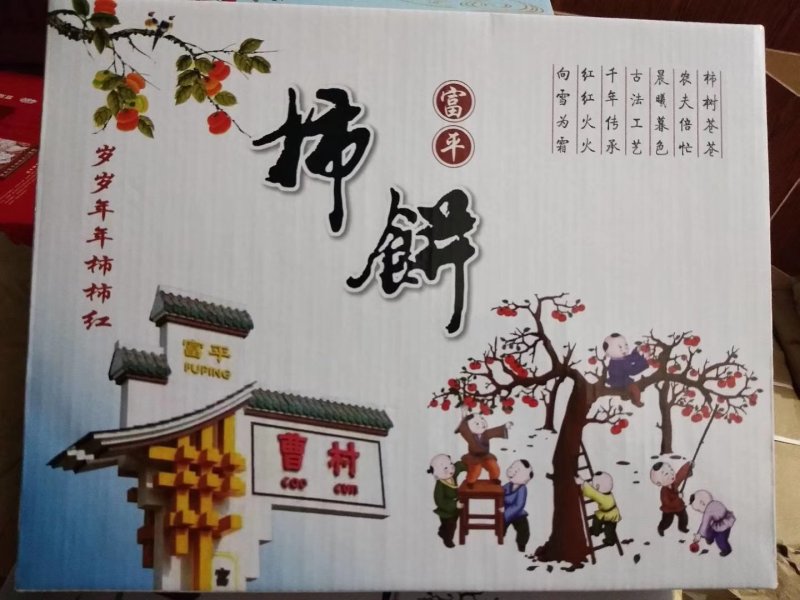 富平
柿餅
柿树苍苍
农夫倍忙
晨曦暮色
古法工艺
千年传承
红红火火
向雪为霜
岁岁年年柿柿红
富平
FUPING
曹村
COO CUN
富